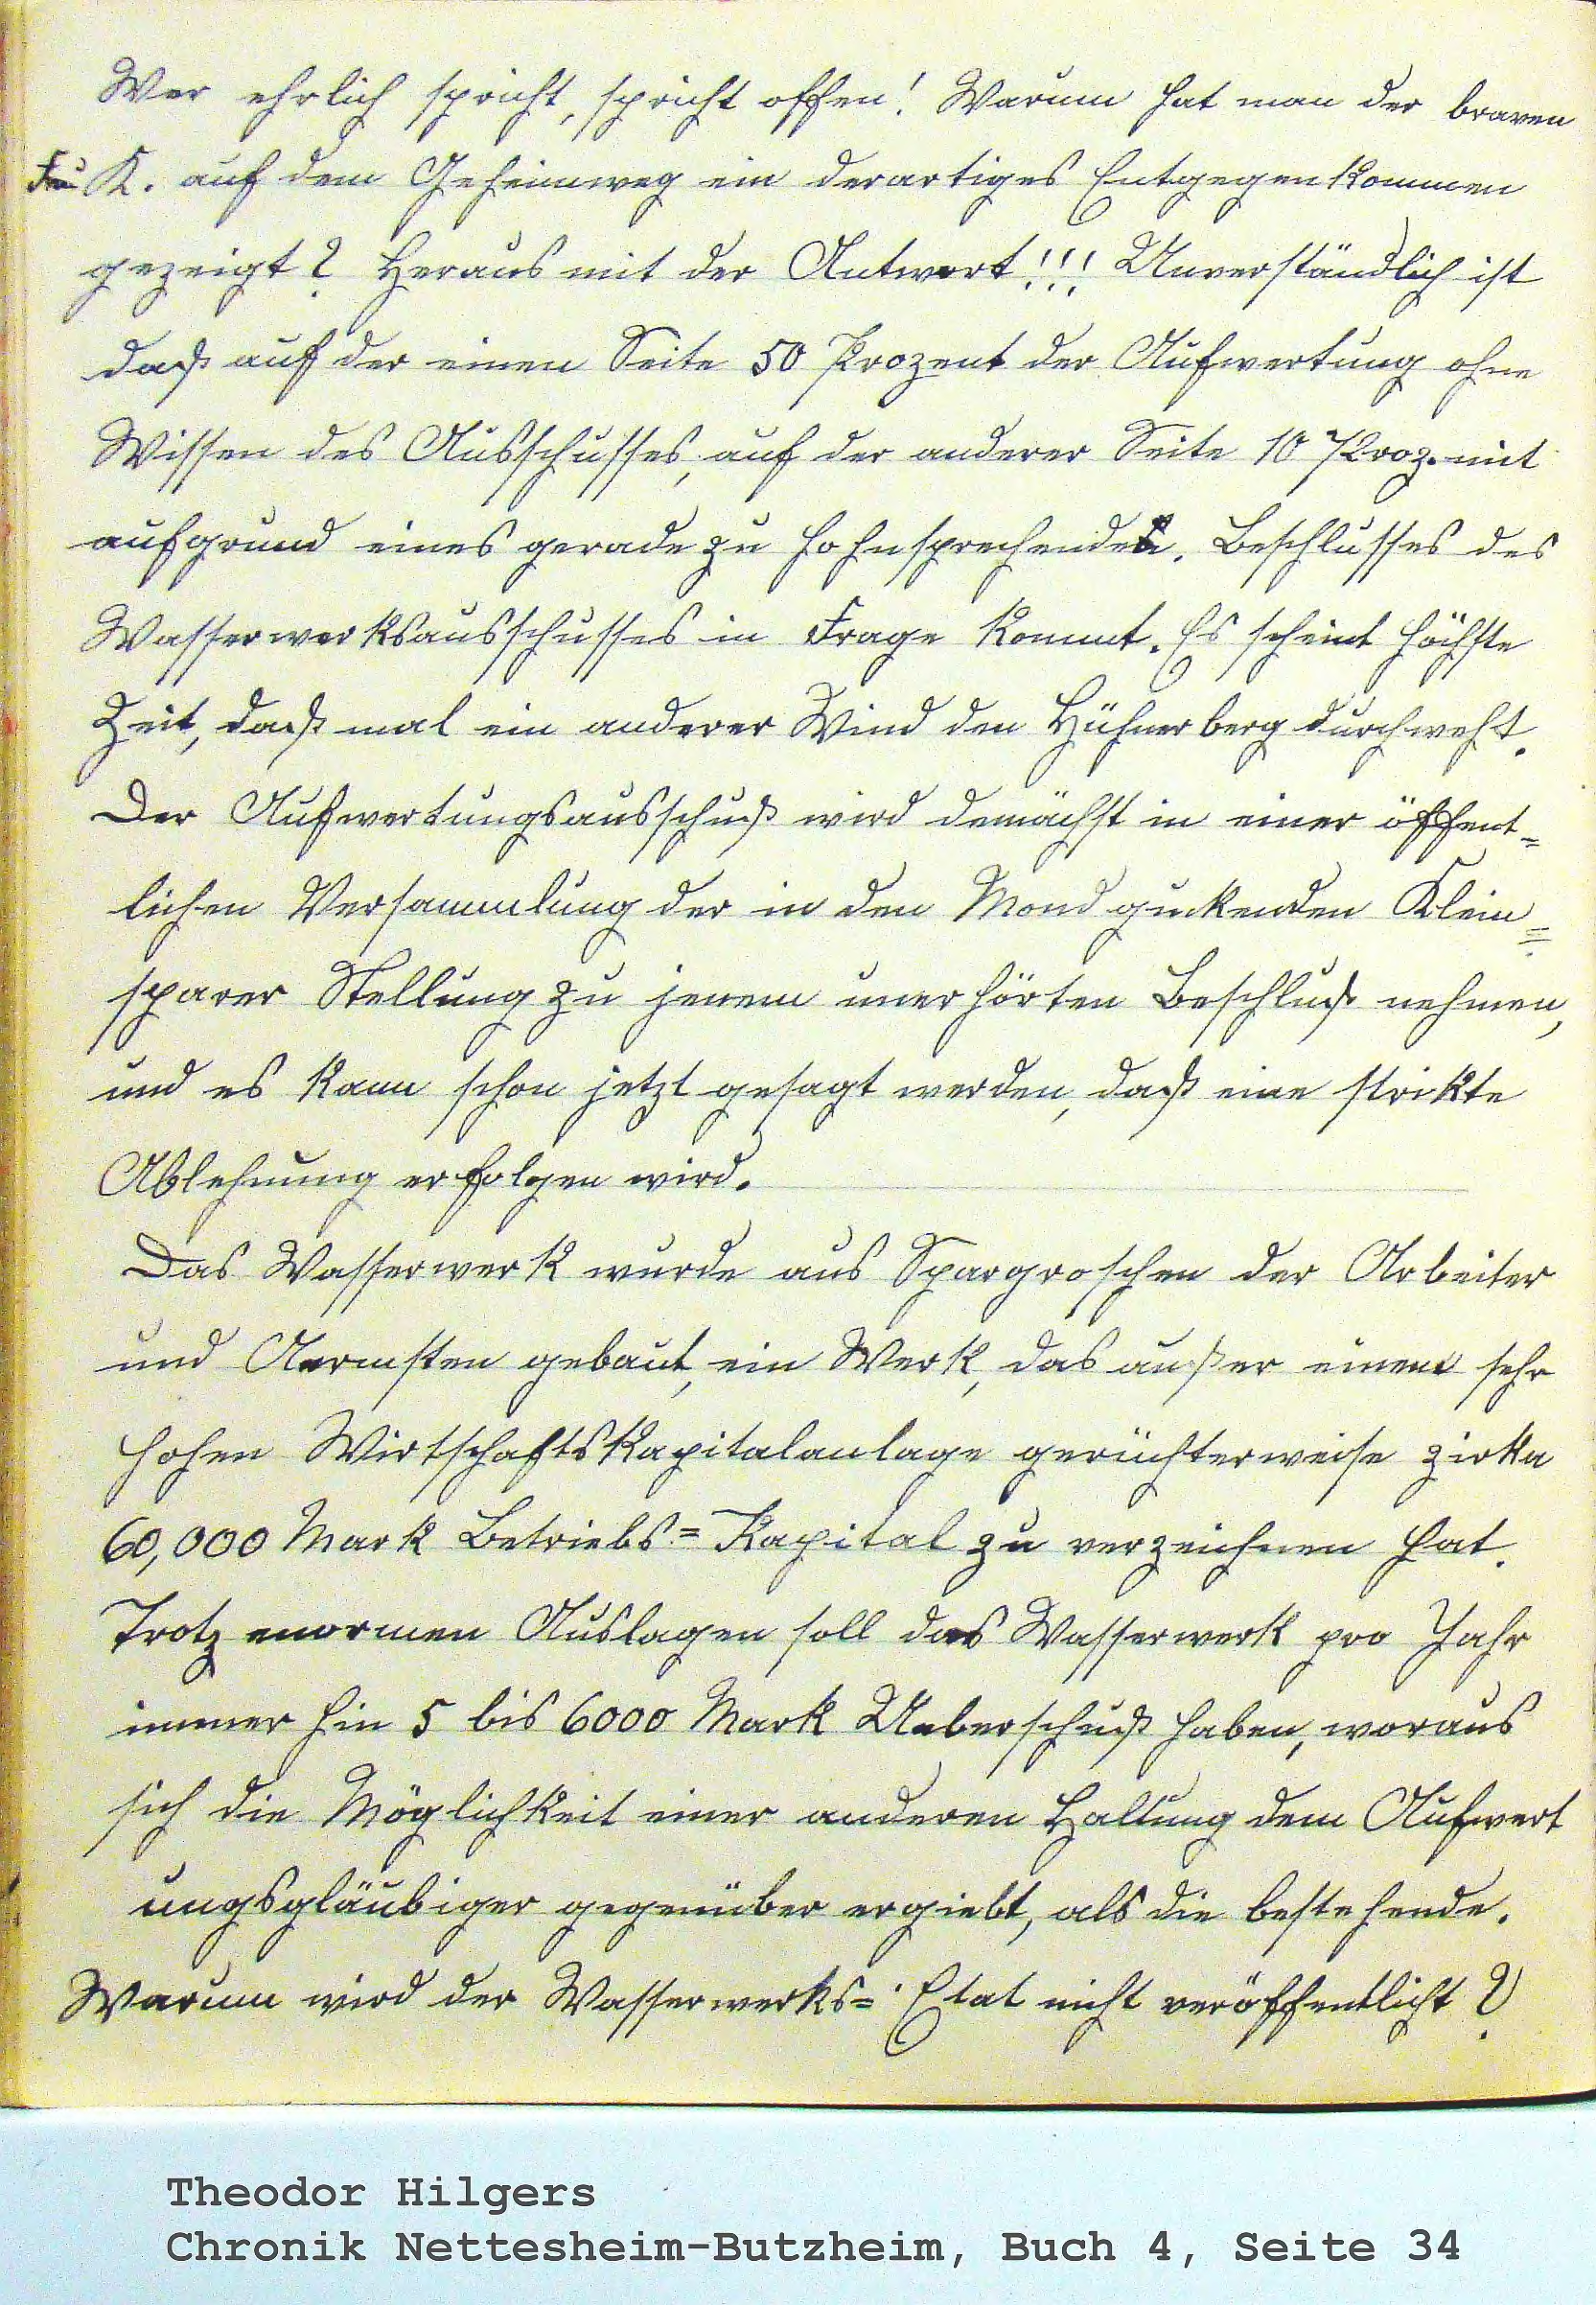 Wer ehrlich spricht, spricht offen! Warum hat man der braven
Frau K. auf dem Geheimweg ein derartiges Entgegenkommen
gezeigt? Heraus mit der Antwort!!! Unverständlich ist
daß auf der einen Seite 50 Prozent der Aufwertung ohne
Wissen des Ausschusses, auf der anderer Seite 10 Proz. mit
aufgrund eines gerade zu hohnsprechenden. Beschlusses des
Wasserwerksausschusses in Frage kommt. Es scheint höchste
Zeit, daß mal ein anderer Wind den Hühnerberg durchweht.
Der Aufwertungsausschuß wird demächst in einer öffent=
lichen Versammlung der in den Mond guckenden Klein=
sparer Stellung zu jenem unerhörten Beschluß nehmen,
und es kann schon jetzt gesagt werden, daß eine strikte
Ablehnung erfolgen wird.
Das Wasserwerk wurde aus Spargroschen der Arbeiter
und Aermsten gebaut, ein Werk, das außer einem sehr
hohen Wirtschaftskapitalanlage gerüchterweise zirka
60,000 Mark Betriebs=Kapital zu verzeichnen hat.
Trotz enormen Auslagen soll das Wasserwerk pro Jahr
immer hin 5 bis 6000 Mark Ueberschuß haben, woraus
sich die Möglichkeit einer anderen Haltung dem Aufwert
ungsgläubiger gegenüber ergiebt, als die bestehende.
Warum wird der Wasserwerks=Etat nicht veröffentlicht?
Theodor Hilgers
Chronik Nettesheim-Butzheim, Buch 4, Seite 34